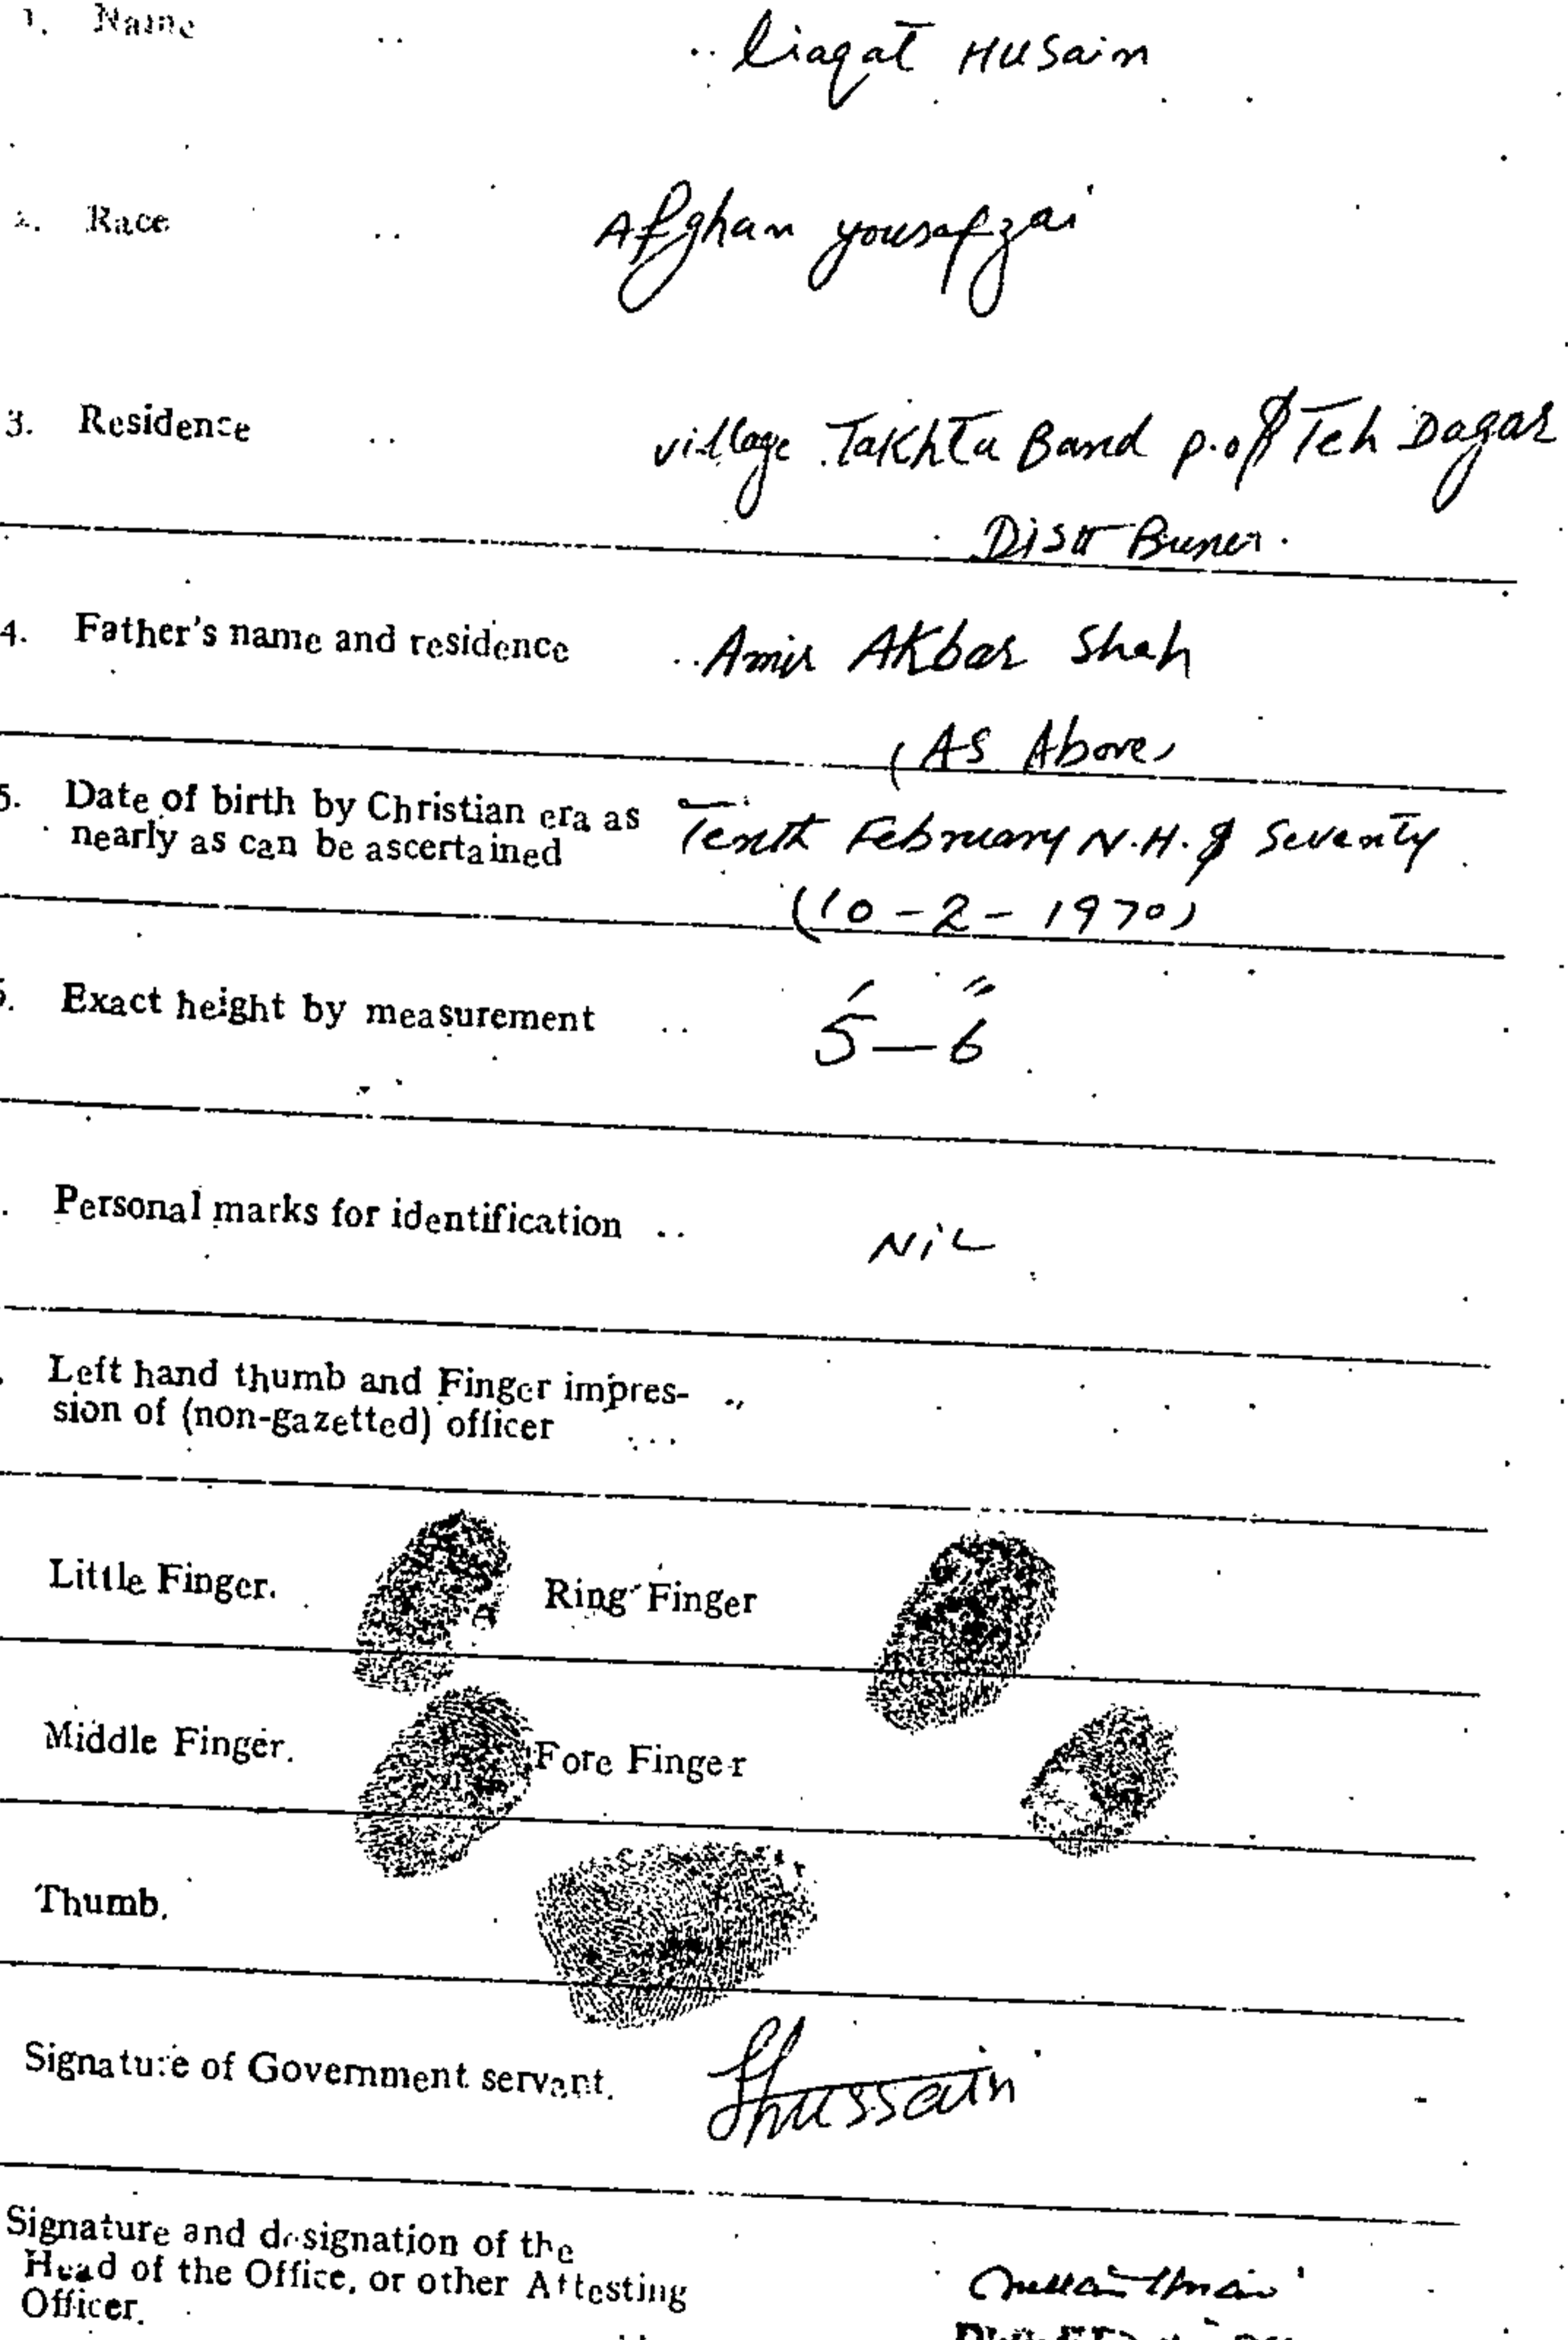 1. Name .. .. liaqat Husain
2. Race .. Afghan yousafzai
3. Residence .. village Takhta Band p.o & Teh Dagar
Distt Buner.
4. Father's name and residence .. Amir Akbar Shah
(As Above)
5. Date of birth by Christian era as
nearly as can be ascertained Tenth February N.H. & Seventy
(10-2-1970)
Exact height by measurement .. 5'-6"
Personal marks for identification .. NiL
Left hand thumb and Finger impres-
sion of (non-gazetted) officer ...
Little Finger. Ring Finger
Middle Finger. Fore Finger
Thumb.
Signature of Government servant. Lhussain
Signature and designation of the
Head of the Office, or other Attesting
Officer.